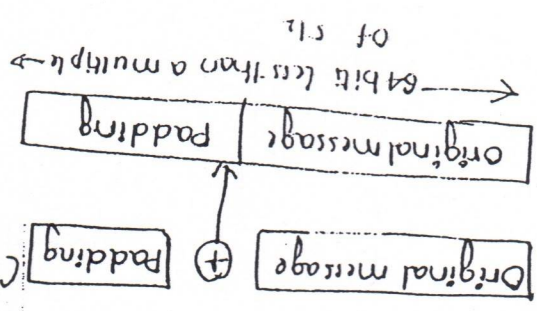 Original message + Padding
Original message Padding
64 bits less than a multiple
Of 512